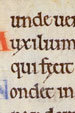 unde ue
Auxilium
qui fecit
Non det in